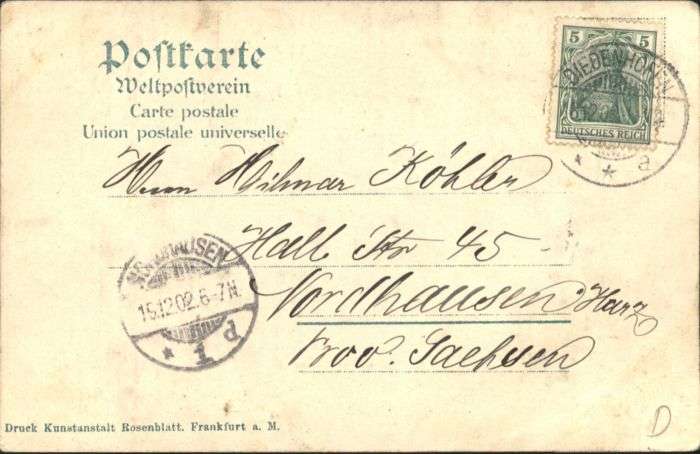 Postkarte
Weltpostverein
Carte postale
Union postale universelle
5 5
DEUTSCHES REICH
DIEDENHOFEN
a
Herrn Hilmar Köhler
Hall Str 45
Nordhausen Harz
Prov. Sachsen
NORDHAUSEN
15.12.02.6-7N.
* 1 d
Druck Kunstanstalt Rosenblatt. Frankfurt a. M.
D